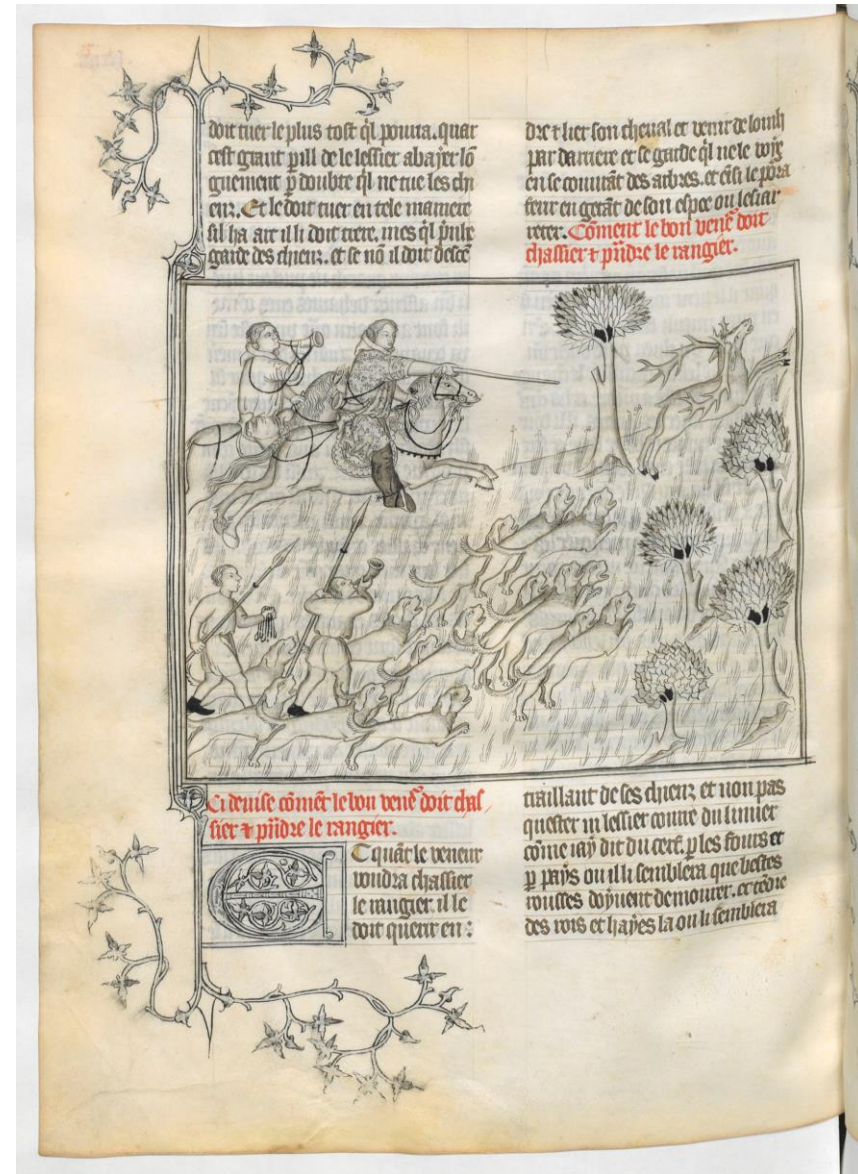 doit tuer le plus tost ql pourra. quar
cest grant pill de le lessier abayer lō
guement p doubte ql ne tue les chi
enz. Et le doit tuer en tele maniere
sil ha arc il li doit trere. mes ql prīh
garde des chienz. et se nō il doit desce
dre τ lier son cheual et venir de loinh
par darriere et se garde ql ne le voye
en se couurāt des arbres. et eīsi le pōra
ferir en getāt de son espee ou lesiar
reter. Cōment le bon vene doit
chassier τ prīdre le rangier.
Ci deuise cōmēt le bon vene doit chas
sier τ prīdre le rangier.
Et quāt le veneur
voudra chassier
le rangier il le
doit querir en :
traillant de ses chienz et non pas
quester ni lessier courre du limier
cōme iaÿ dit du cerf. p les fours et
p paÿs ou il li semblera que bestes
rousses doÿuent demourer. et tēdre
des rois et haÿes la ou li semblera